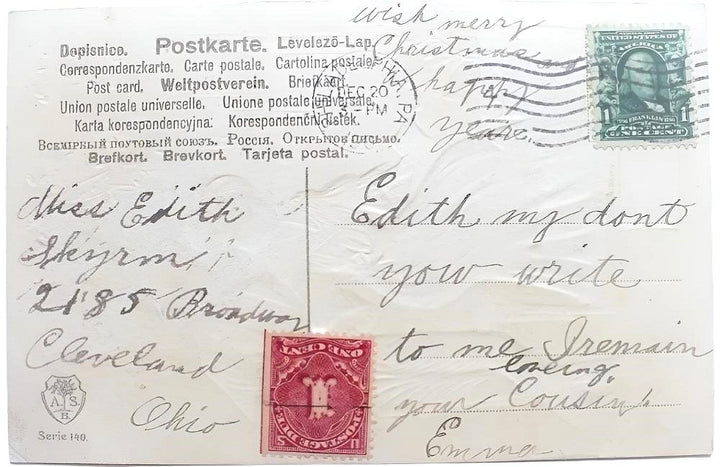 Dopisnice. Postkarte. Levelező-Lap.
Correspondenzkarte. Carte postale. Cartolina postale.
Post card. Weltpostverein. Briefkaart.
Union postale universelle. Unione postale universale.
Karta korespondencyjna. Korespondenční lístek.
Всемірный почтовый союзъ. Россія. Открытое письмо.
Brefkort. Brevkort. Tarjeta postal.
wish merry
Christmas
happy
year
DEC 20
3 - PM
PA
UNITED STATES OF
1 1
FRANKLIN
POSTAGE
ONE CENT
Miss Edith
Skyrm
2185 Broadway
Cleveland
Ohio
Edith my dont
yow write
to me Iremain
loveing
your Cousin
Emma
ONE CENT
1
POSTAGE DUE
U S
A. S.
B.
Serie 140.